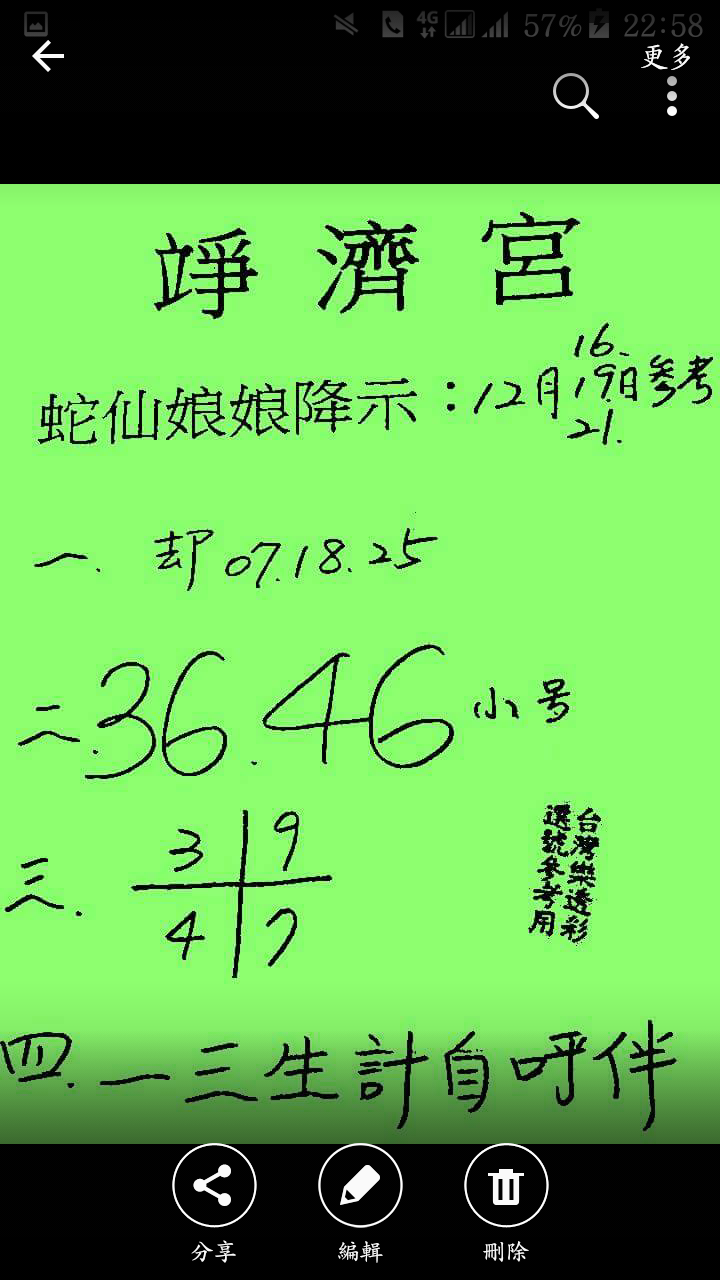 4G 57% 22:58
更多
竫濟宮
蛇仙娘娘降示：12月16.19.21.日參考
一. 刼07.18.25
二.36.46小号
三. 3 9
4 7
台灣樂透彩
選號參考用
四.一三生計自呼伴
分享 編輯 刪除